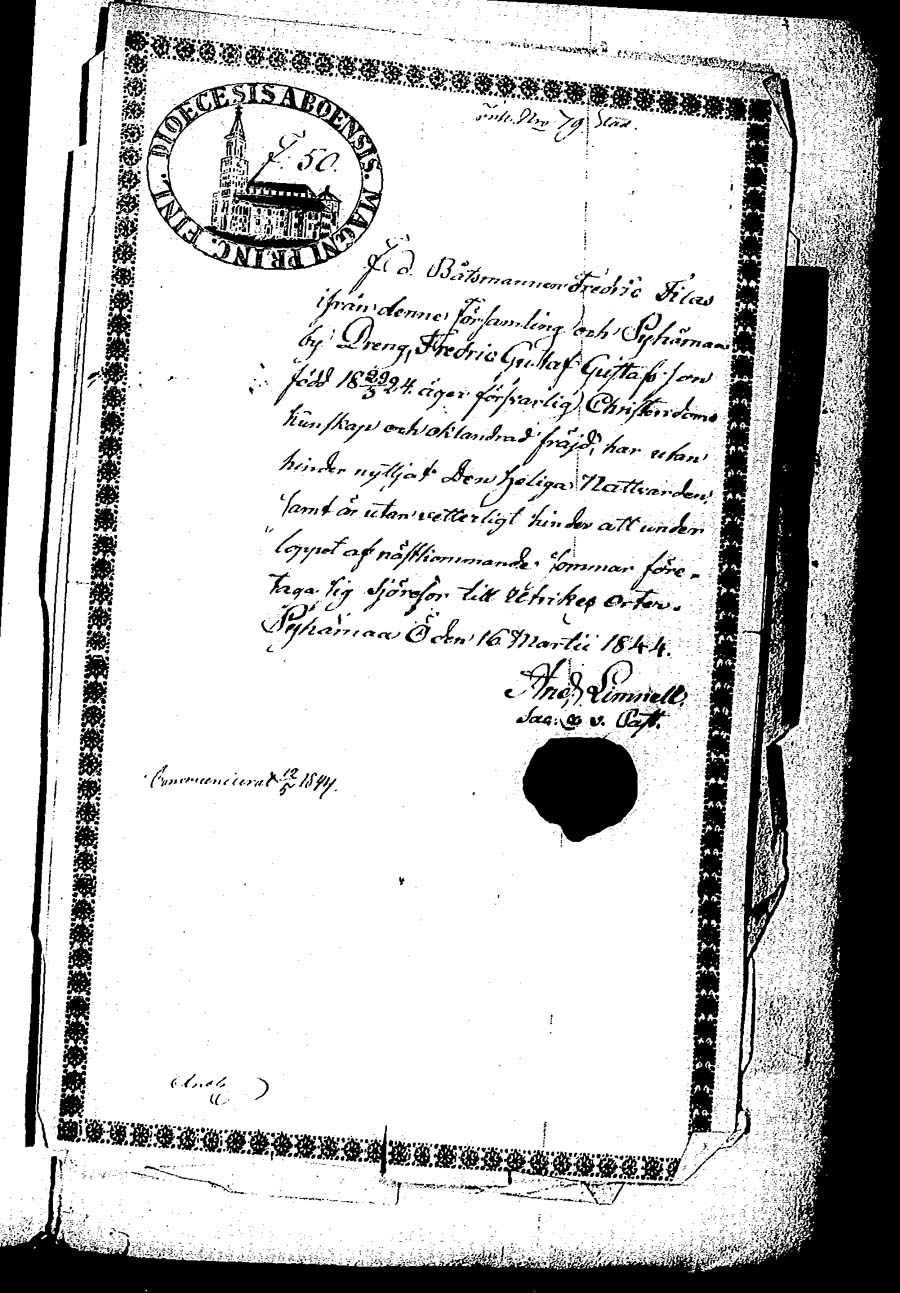 DIOECESIS ABOENSIS. MAGNI PRINC. FINL.
f. 50.
Nro 79
F. d. Båtsmannen Fredric Filas
ifrån denne församling och Pyhämaa
by Dreng, Fredric Gustaf Gustafsson
född 18 29/3 24. äger försvarlig Christendoms
kunskap och oklandrad fräjd, har utan
hinder nyttjat Den Heliga Nattvarden,
samt är utan vetterligt hinder att under
loppet af nästkommande sommar före-
taga sig sjöresor till Utrikes orter.
Pyhämaa Ö den 16 Martii 1844.
And. Limnell.
Sac. v. Past.
Communicerat 12/5 1844.